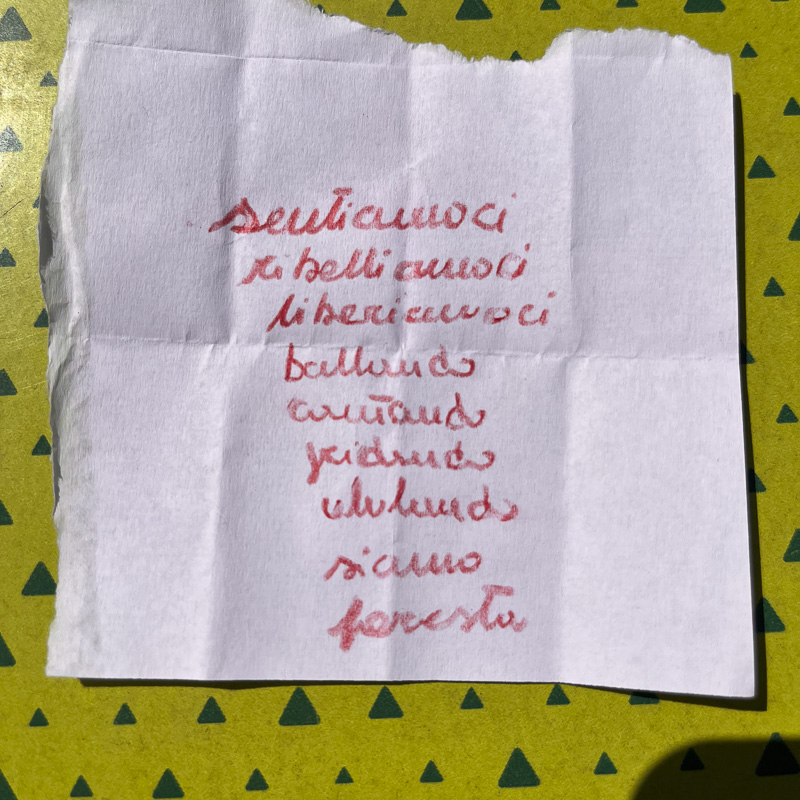 sentiamoci
ribelliamoci
liberiamoci
ballando
cantando
gridando
ululando
siamo
foresta